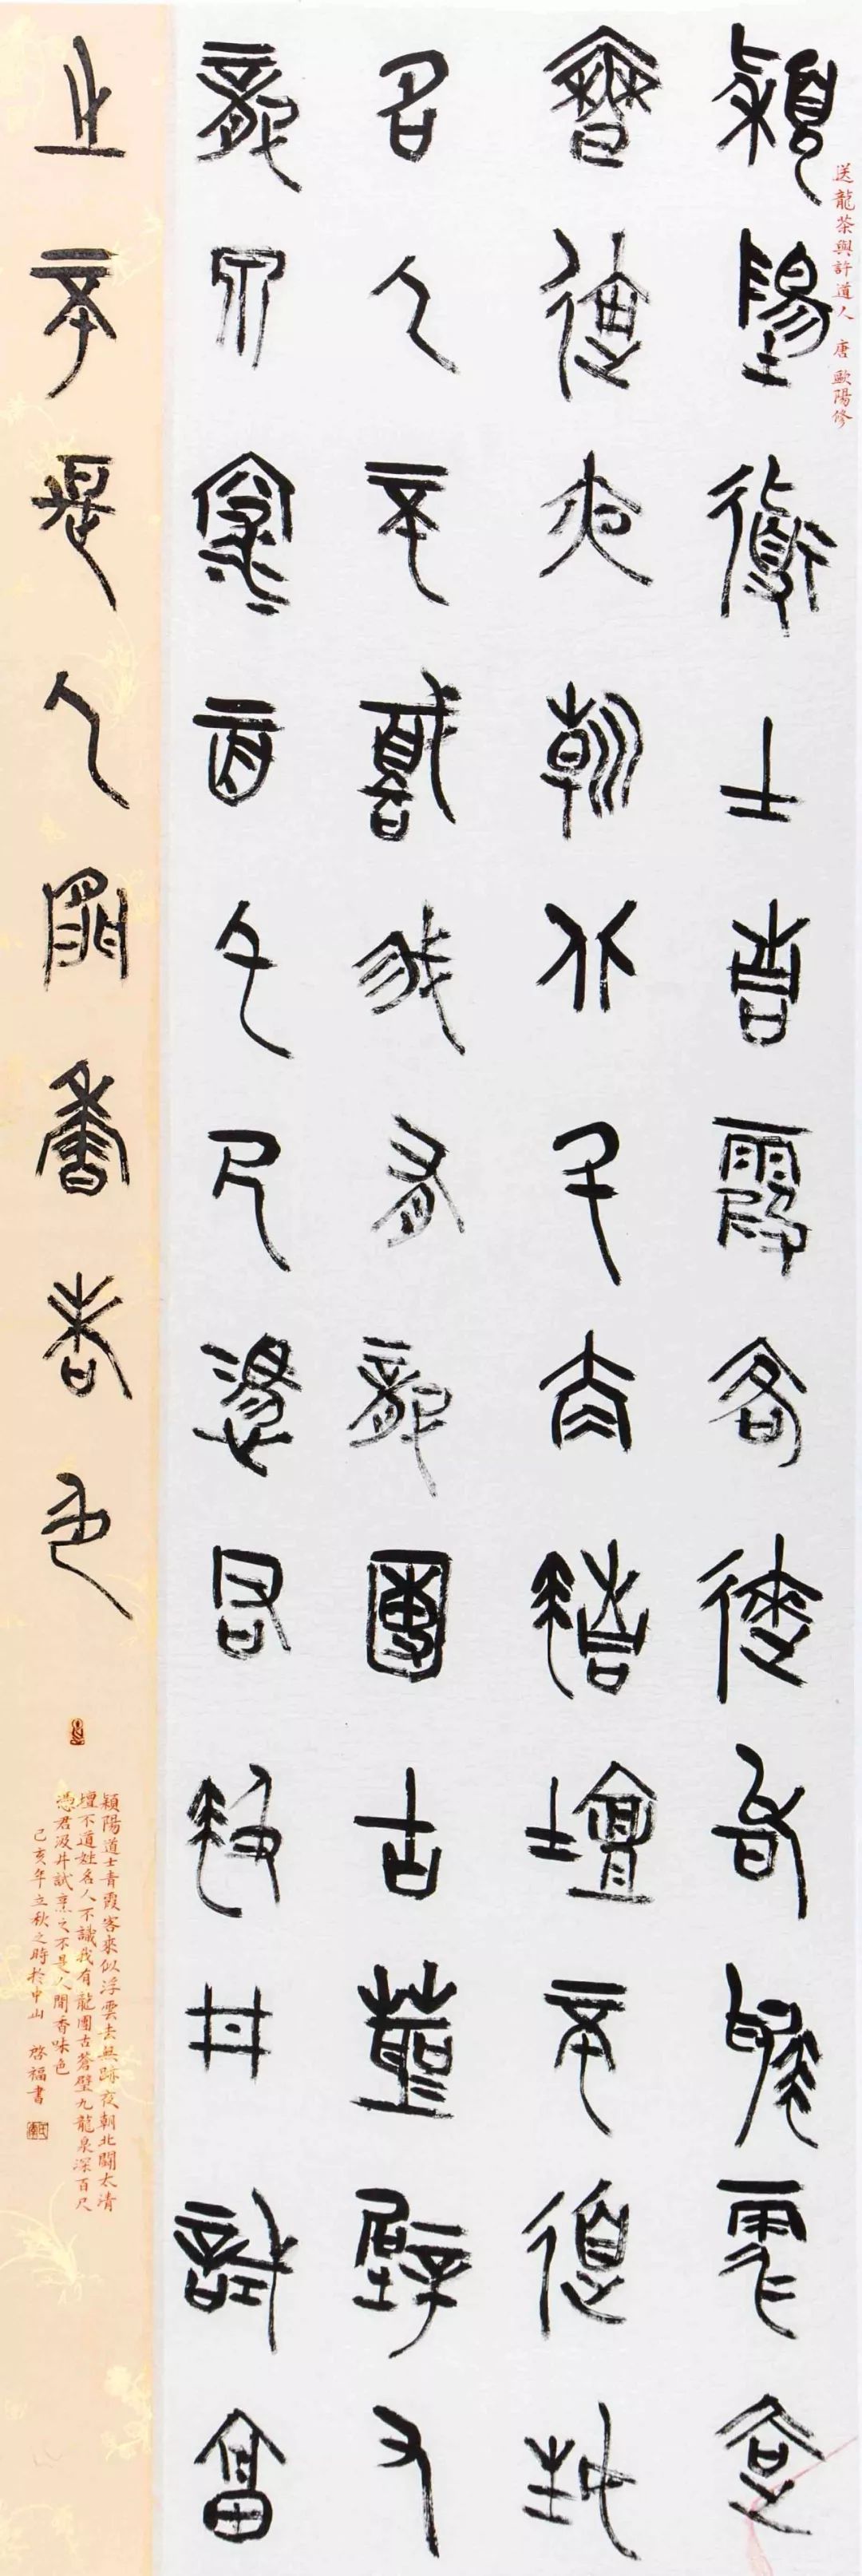 送龍茶與許道人 唐 歐陽修
穎陽道士青霞客來似浮雲去
無跡夜朝北斗太清壇不道姓
名人不識我有龍團古蒼璧九
龍泉深百尺憑君汲井試烹
之不是人間香味色
穎陽道士青霞客來似浮雲去無跡夜朝北鬭太清
壇不道姓名人不識我有龍團古蒼璧九龍泉深百尺
憑君汲井試烹之不是人間香味色
己亥年立秋之時於中山 啓福書